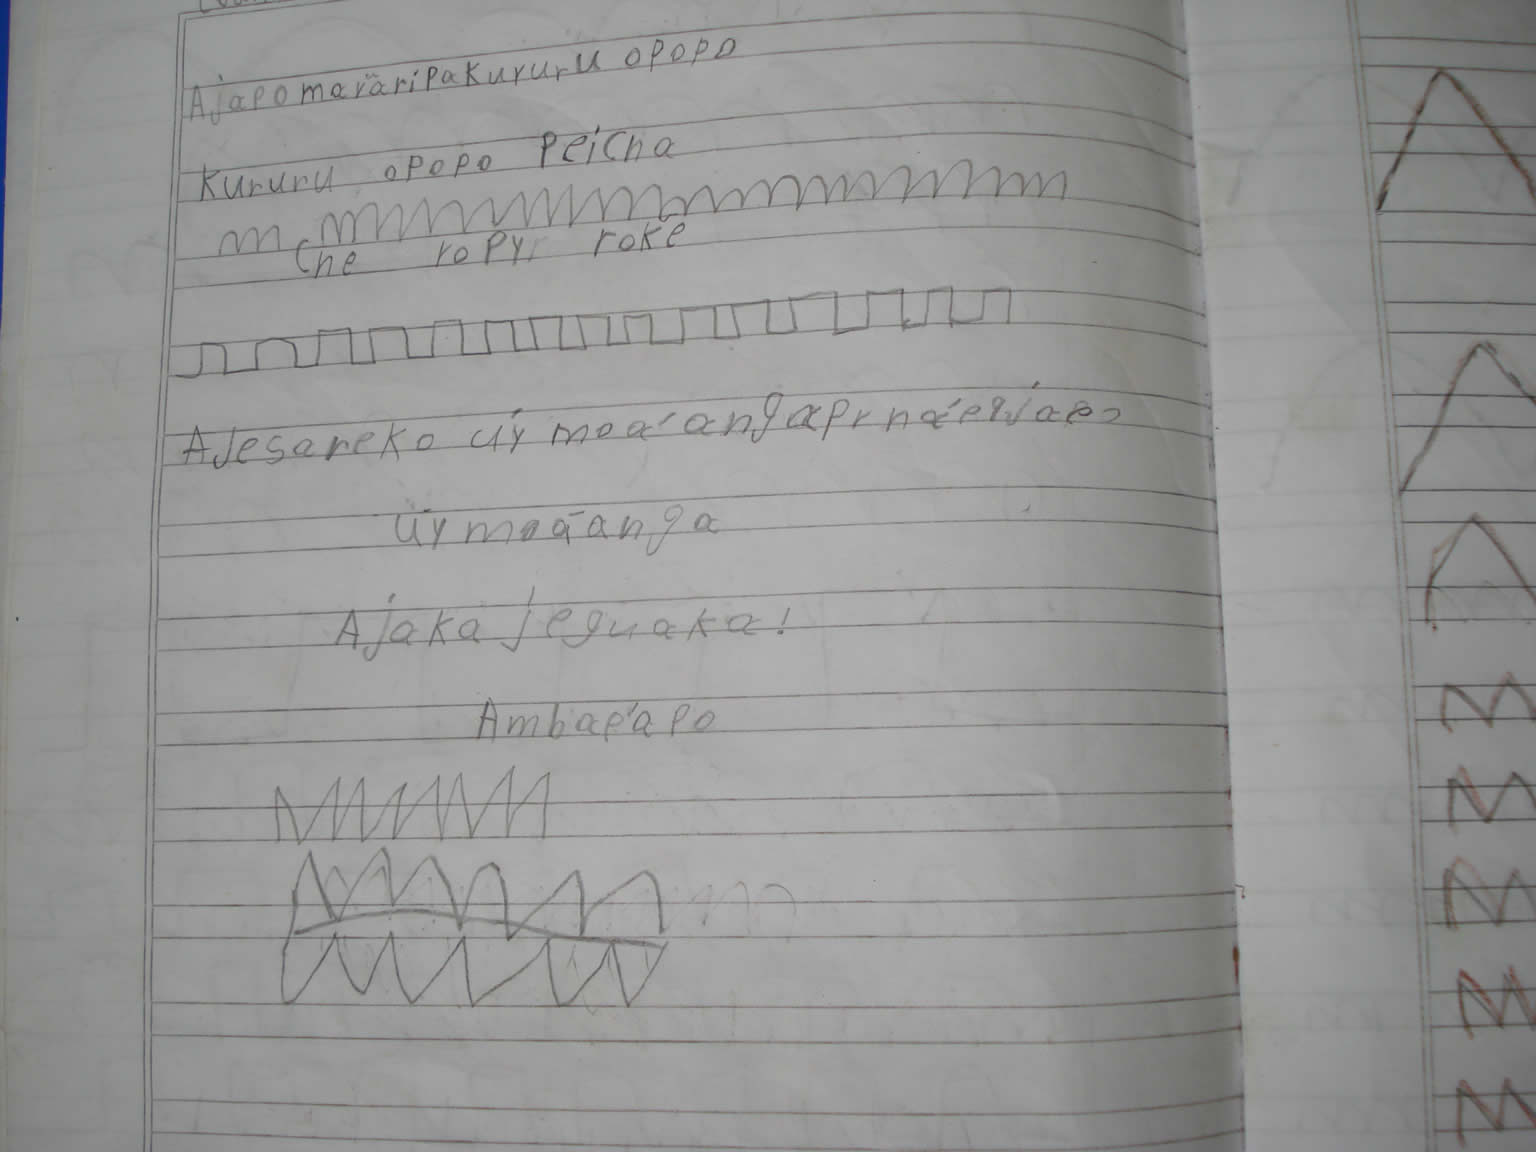 Ajapo maräripa Kururu opopo
Kururu opopo peicha
che ropy, roke
Ajesareko uy moa'anga
uy moā'anga
Ajaka jeguaka!
Ambapa'apo